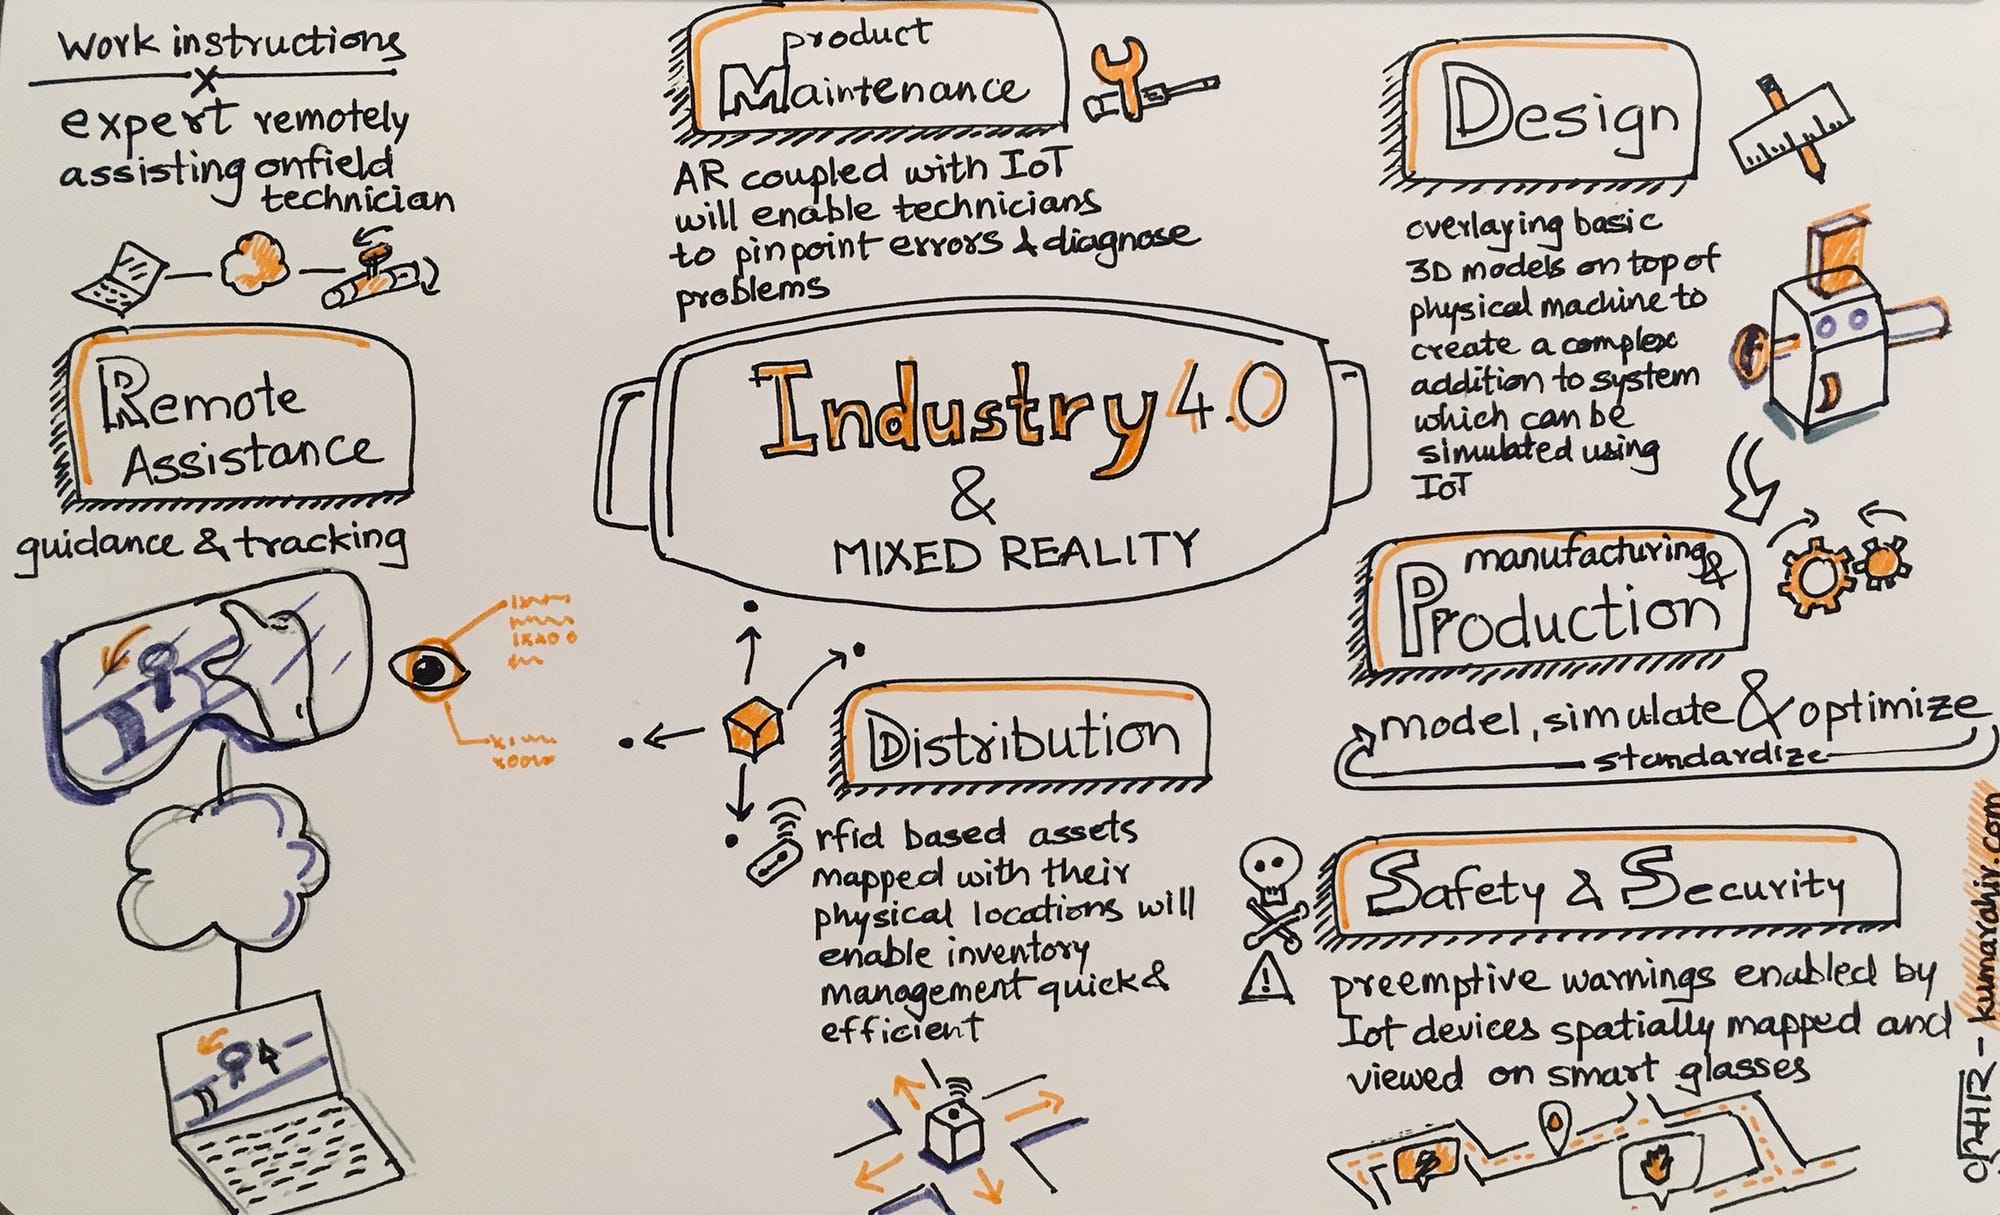 Work instructions
x
expert remotely
assisting onfield
technician
Remote
Assistance
guidance & tracking
product
Maintenance
AR coupled with IoT
will enable technicians
to pinpoint errors & diagnose
problems
Industry 4.0
&
MIXED REALITY
Distribution
rfid based assets
mapped with their
physical locations will
enable inventory
management quick &
efficient
Design
overlaying basic
3D models on top of
physical machine to
create a complex
addition to system
which can be
simulated using
IoT
manufacturing &
Production
model, simulate & optimize
standardize
Safety & Security
preemptive warnings enabled by
Iot devices spatially mapped and
viewed on smart glasses
kumarahir.com